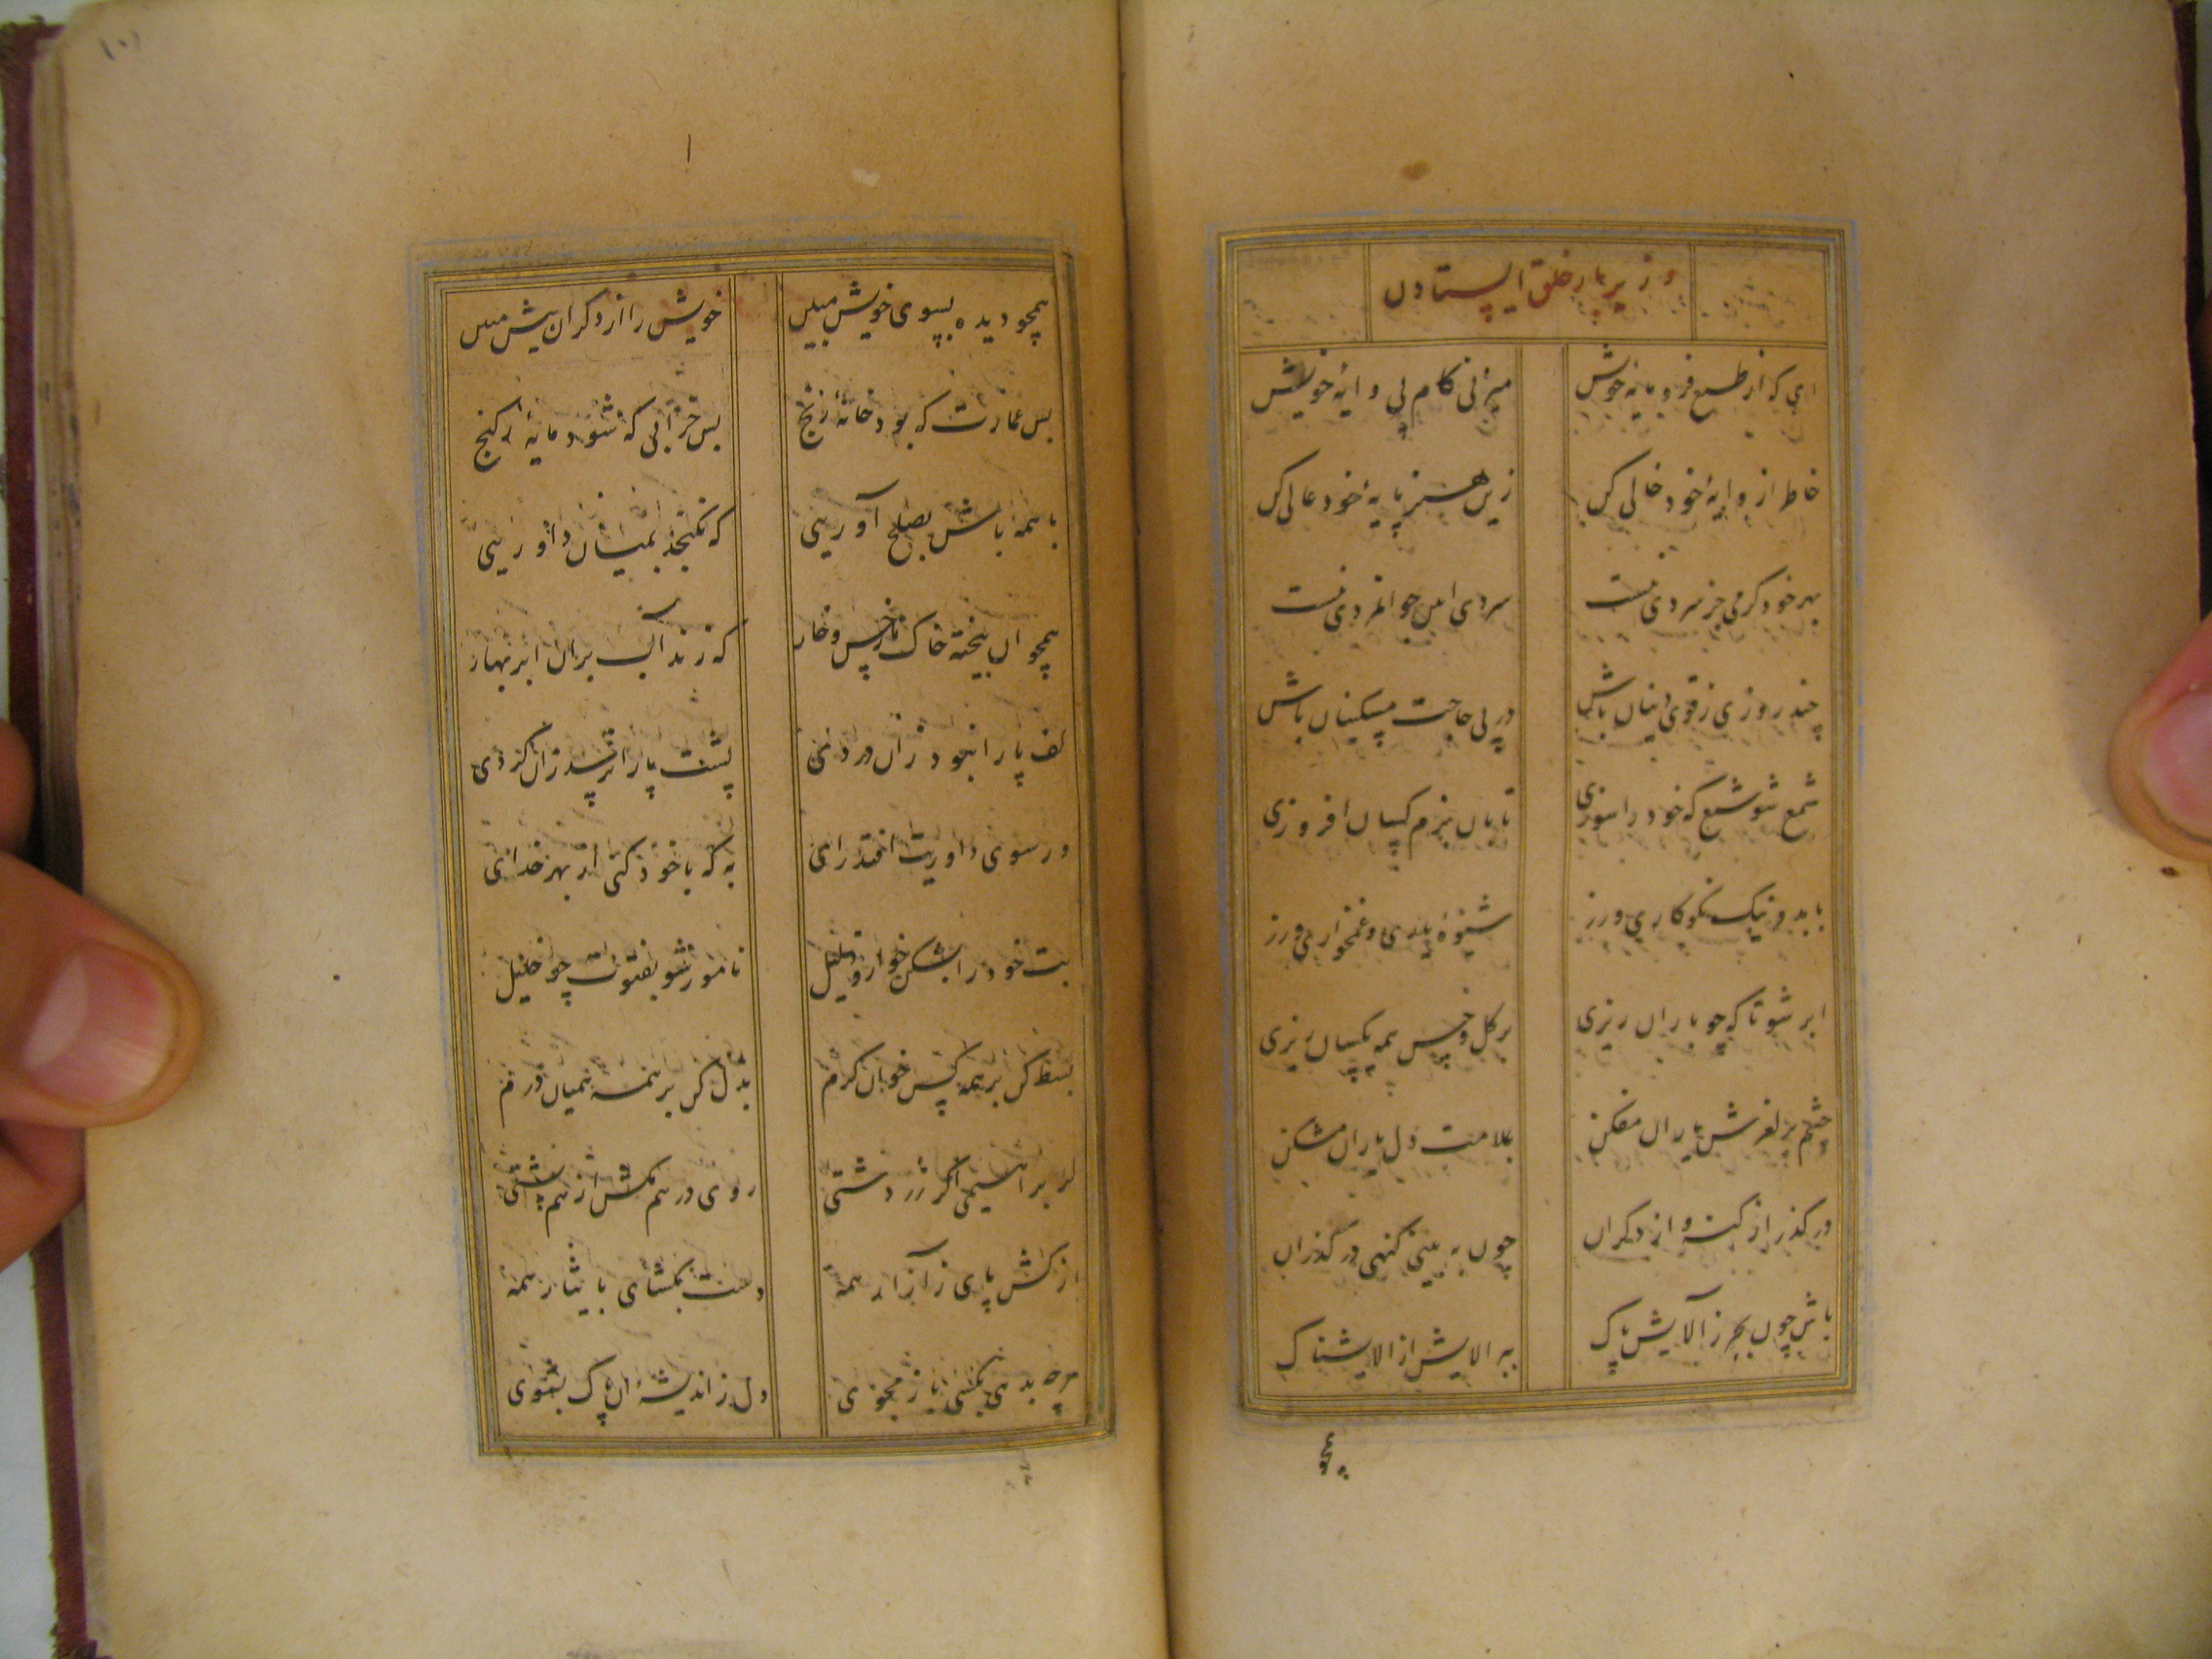 و زیر بار خلق ایستادن
ای که از طبع فرومایه خویش میزنی گام پی وایه خویش
خاطر از وایه خود خالی کن زین هنر پایه خود عالی کن
بهر خود گرمی جز سردی نیست سردی این جوانمردی نیست
چند روزی ز قوی دینان باش در پی حاجت مسکینان باش
شمع شو شمع که خود را سوزی تا بآن بزم کسان افروزی
با بد و نیک نکوکاری ورز شیوه یاری و غمخواری ورز
ابر شو تا که چو باران ریزی بر گل و خس همه یکسان ریزی
چشم بر لغزش یاران مفکن بملامت دل یاران مشکن
در گذر از گنه و از دگران چون به بینی گنهی در گذران
باش چون بحر ز آلایش پاک ببر آلایش از آلایشناک
همچو
۱۰۱
۱
همچو دیده بسوی خویش مبین خویش را از دگران بیش مبین
بس عمارت که بود خانه رنج بس خرابی که شود مایه گنج
با همه باش بصلح آورینی که نگنجد بمیان داورینی
همچو آن بیخته خاک ز خس و خار که زند آب بر آن ابر بهار
کف پا را نبود زان دردی پشت پا را نرسد زان گردی
ور سوی داوریت افتد رای به که با خود کنی از بهر خدای
بت خود را بشکن خوار و ذلیل نامور شو بفتوت چو خلیل
بسط کن بر همه کس خوان کرم بذل کن بر همه همیان درم
گر براهیمی اگر زردشتی روی درهم مکش از هم پشتی
باز کش پای ز آزار همه دست بگشای بایثار همه
هر چه بدهی بکسی باز مجوی دل ز اندیشه آن پاک بشوی